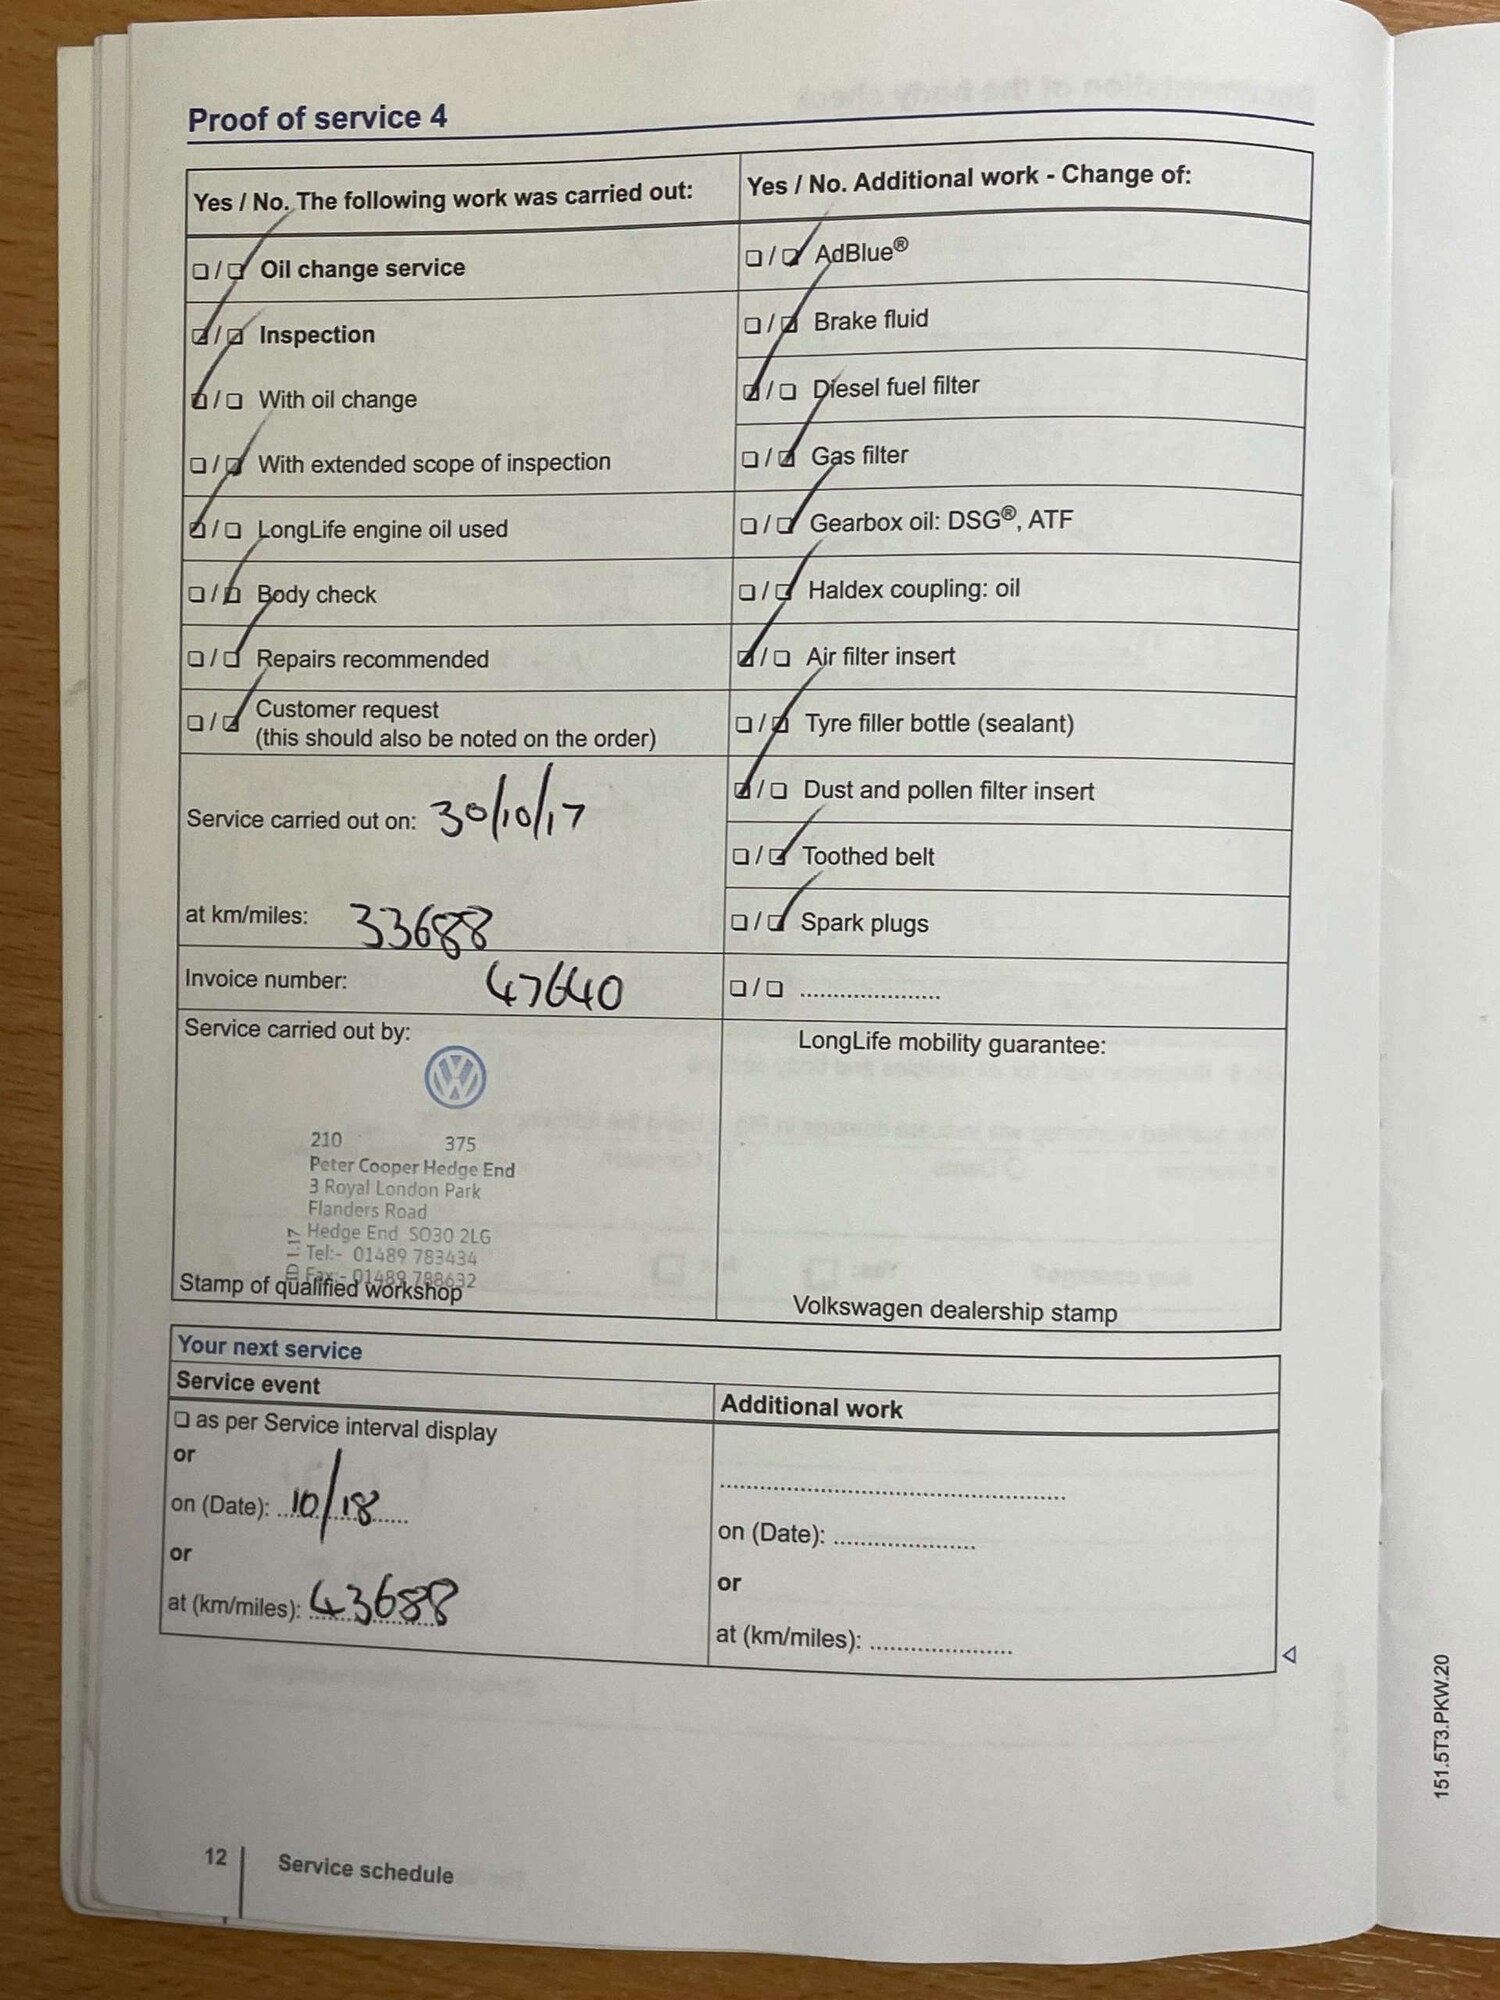 Proof of service 4
Yes / No. The following work was carried out:
Oil change service
Inspection
With oil change
With extended scope of inspection
LongLife engine oil used
Body check
Repairs recommended
Customer request
(this should also be noted on the order)
Service carried out on: 30/10/17
at km/miles: 33688
Invoice number: 47640
Service carried out by:
210 375
Peter Cooper Hedge End
3 Royal London Park
Flanders Road
Hedge End SO30 2LG
Tel:- 01489 783434
Fax:- 01489 788632
Stamp of qualified workshop
Yes / No. Additional work - Change of:
AdBlue®
Brake fluid
Diesel fuel filter
Gas filter
Gearbox oil: DSG®, ATF
Haldex coupling: oil
Air filter insert
Tyre filler bottle (sealant)
Dust and pollen filter insert
Toothed belt
Spark plugs
LongLife mobility guarantee:
Volkswagen dealership stamp
Your next service
Service event
as per Service interval display
or
on (Date): 10/18
or
at (km/miles): 43688
Additional work
on (Date):
or
at (km/miles):
12 Service schedule
151.5T3.PKW.20